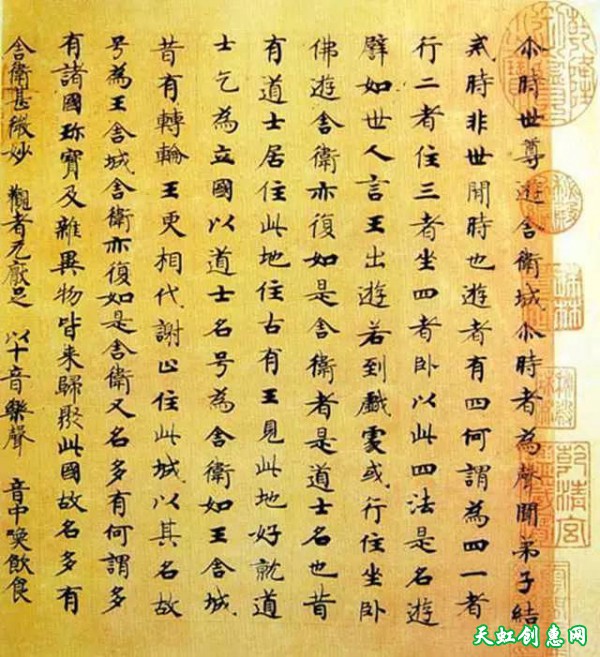 尒時世尊遊舍衛城尒時者為聲聞弟子結
戒時非世間時也遊者有四何謂為四一者
行二者住三者坐四者卧以此四法是名遊
譬如世人言王出遊若到戲處或行住坐卧
佛遊舍衛亦復如是舍衛者是道士名也昔
有道士居住此地往古有王見此地好就道
士乞為立國以道士名号為舍衛如王舍城
昔有轉輪王更相代謝止住此城以其名故
号為王舍城舍衛亦復如是舍衛又名多有何謂多
有諸國珎寶及雜異物皆来歸聚此國故名多有
舍衛甚微妙 觀者无厭足 以十音樂聲 音中喚飲食
乾清宮
天虹创惠网